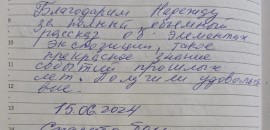 Благодарим Надежду
за полный объемный
рассказ об элементах
экспозиции, такое
прекрасное знание
событий прошлых
лет. Получили удоволь
ствие.
15.06.2024